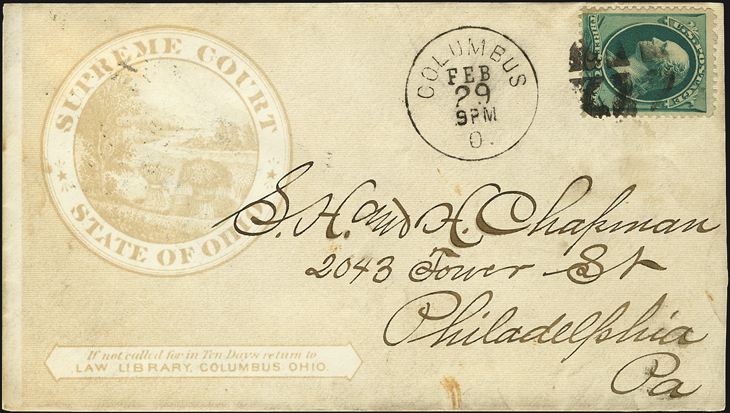 SUPREME COURT
STATE OF OHIO
COLUMBUS
FEB
29
9PM
O.
U.S. POSTAGE
S. H. and H. Chapman
2043 Tower St
Philadelphia
Pa
If not called for in Ten Days return to
LAW LIBRARY, COLUMBUS, OHIO.